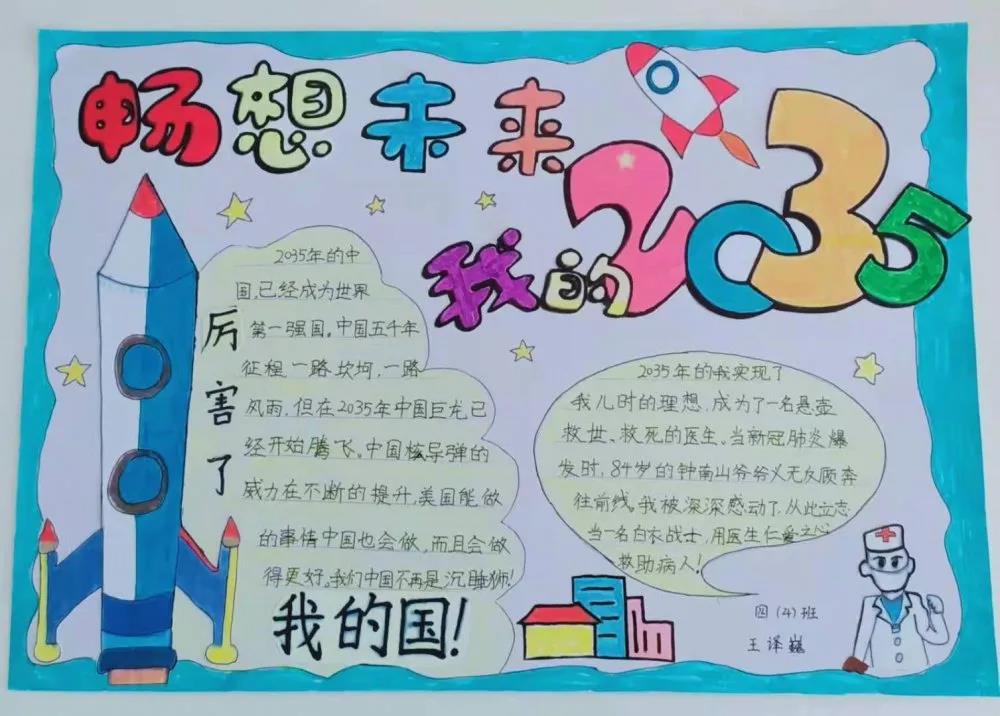 畅想未来
我的2035
厉害了
2035年的中
国,已经成为世界
第一强国。中国五千年
征程一路坎坷,一路
风雨,但在2035年中国巨龙已
经开始腾飞。中国核导弹的
威力在不断的提升,美国能做
的事情中国也会做,而且会做
得更好。我们中国不再是沉睡狮!
我的国!
2035年的我实现了
我儿时的理想,成为了一名悬壶
救世、救死的医生。当新冠肺炎爆
发时,84岁的钟南山爷爷义无反顾奔
往前线。我被深深感动了,从此立志
当一名白衣战士,用医生仁爱之心
救助病人!
四(4)班
王译巍